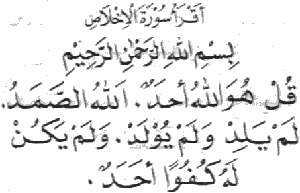 اَقْرَأُ سُوْرَةَ الْاِخْلَاصِ
بِسْمِ اللهِ الرَّحْمٰنِ الرَّحِيْمِ
قُلْ هُوَ اللهُ أَحَدٌ. اَللهُ الصَّمَدُ.
لَمْ يَلِدْ وَلَمْ يُوْلَدْ. وَلَمْ يَكُنْ
لَهُ كُفُوًا أَحَدٌ.